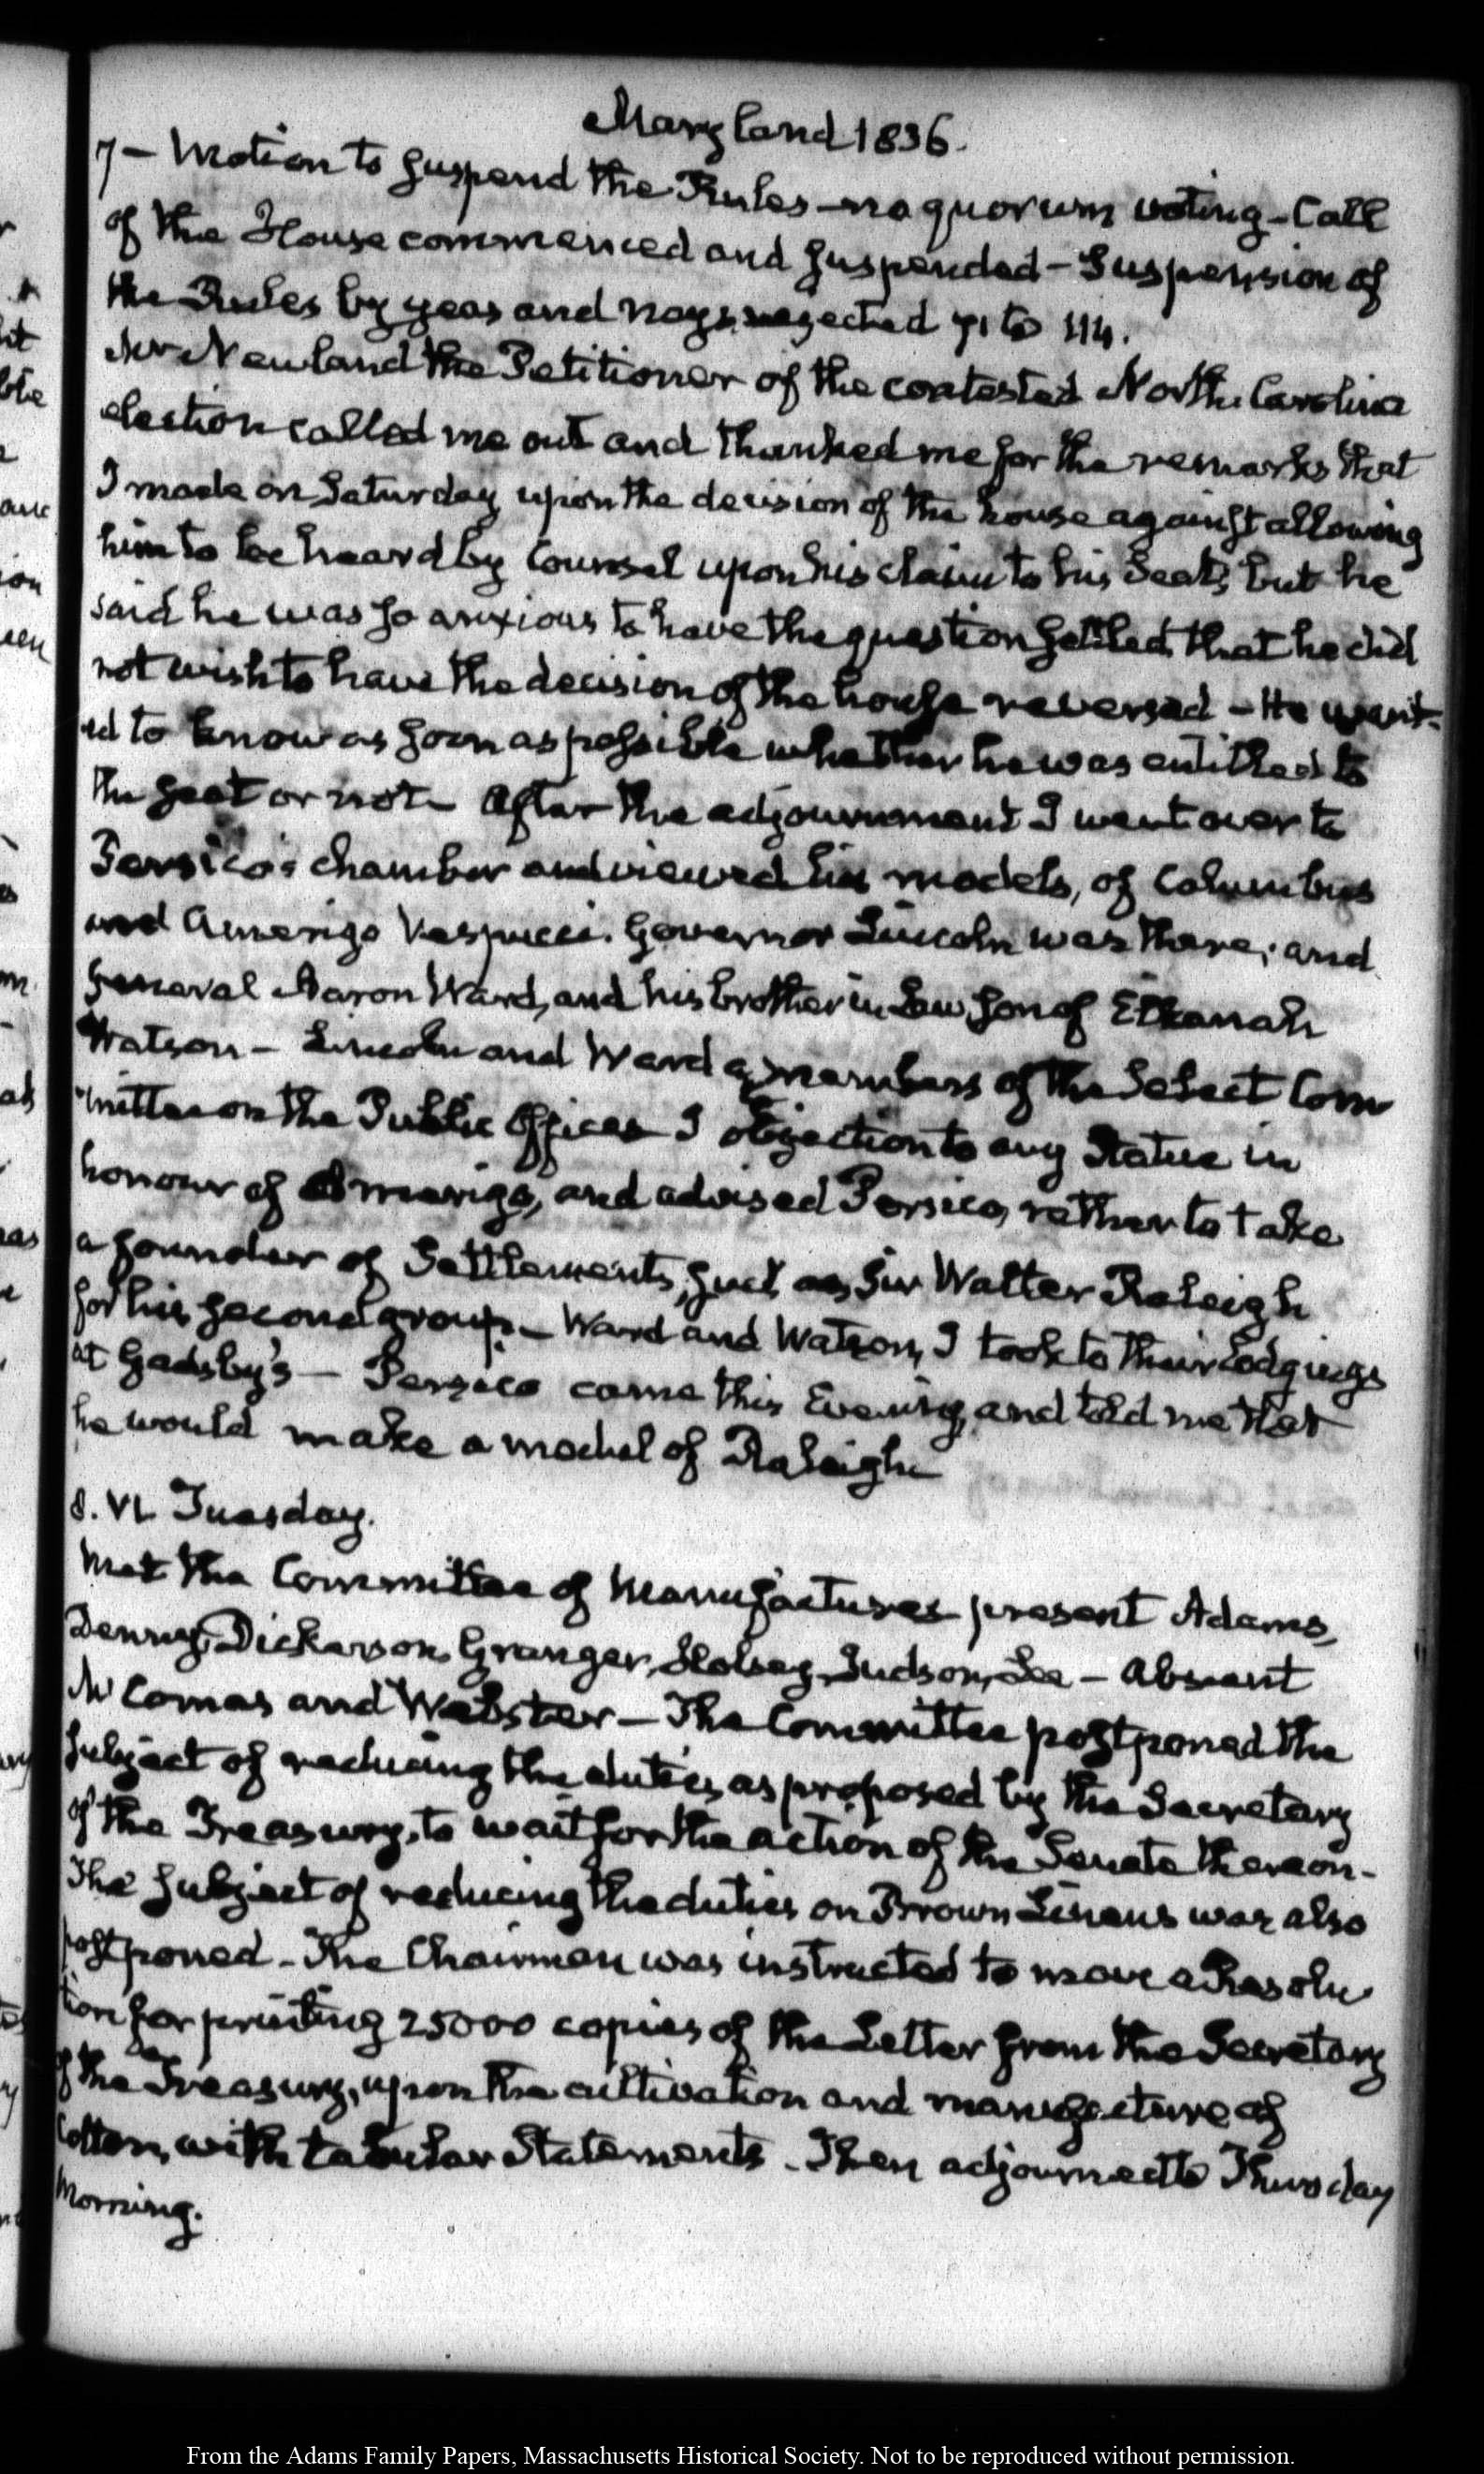 Maryland 1836.
7 – Motion to suspend the Rules – no quorum voting – Call
of the House commenced and suspended – Suspension of
the Rules by yeas and nays rejected 71 to 114.
Mr Newland the Petitioner of the contested North Carolina
election called me out and thanked me for the remarks that
I made on Saturday upon the decision of the house against allowing
him to be heard by Counsel upon his claim to his Seat, but he
said he was so anxious to have the question settled, that he did
not wish to have the decision of the house reversed – He want-
ed to know as soon as possible whether he was entitled to
the seat or not – After the adjournment I went over to
Persico's chamber and viewed his models, of Columbus
and Amerigo Vespucci. Governor Lincoln was there, and
General Aaron Ward, and his brother in Law, son of Elkanah
Watson – Lincoln and Ward members of the Select Com
mittee on the Public Offices I objection to any Statue in
honour of Amerigo, and advised Persico, rather to take
a founder of Settlements, such as, Sir Walter Raleigh
for his second group. – Ward and Watson, I took to their Lodgings
at Gadsby's – Persico came this Evening, and told me that
he would make a model of Raleigh
8. VI. Tuesday.
Met the Committee of Manufactures present Adams,
Denny, Dickerson, Granger, Halsey, Judson, Lee – Absent
McComas and Webster – The Committee postponed the
subject of reducing the duties, as proposed by the Secretary
of the Treasury, to wait for the action of the Senate thereon –
The subject of reducing the duties on Brown Linens was also
postponed – The Chairman was instructed to move a Resolu
tion for printing 25000 copies of the Letter from the Secretary
of the Treasury, upon the cultivation and manufacture of
Cotton, with tabular Statements. Then adjourned to Thursday
Morning.
From the Adams Family Papers, Massachusetts Historical Society. Not to be reproduced without permission.